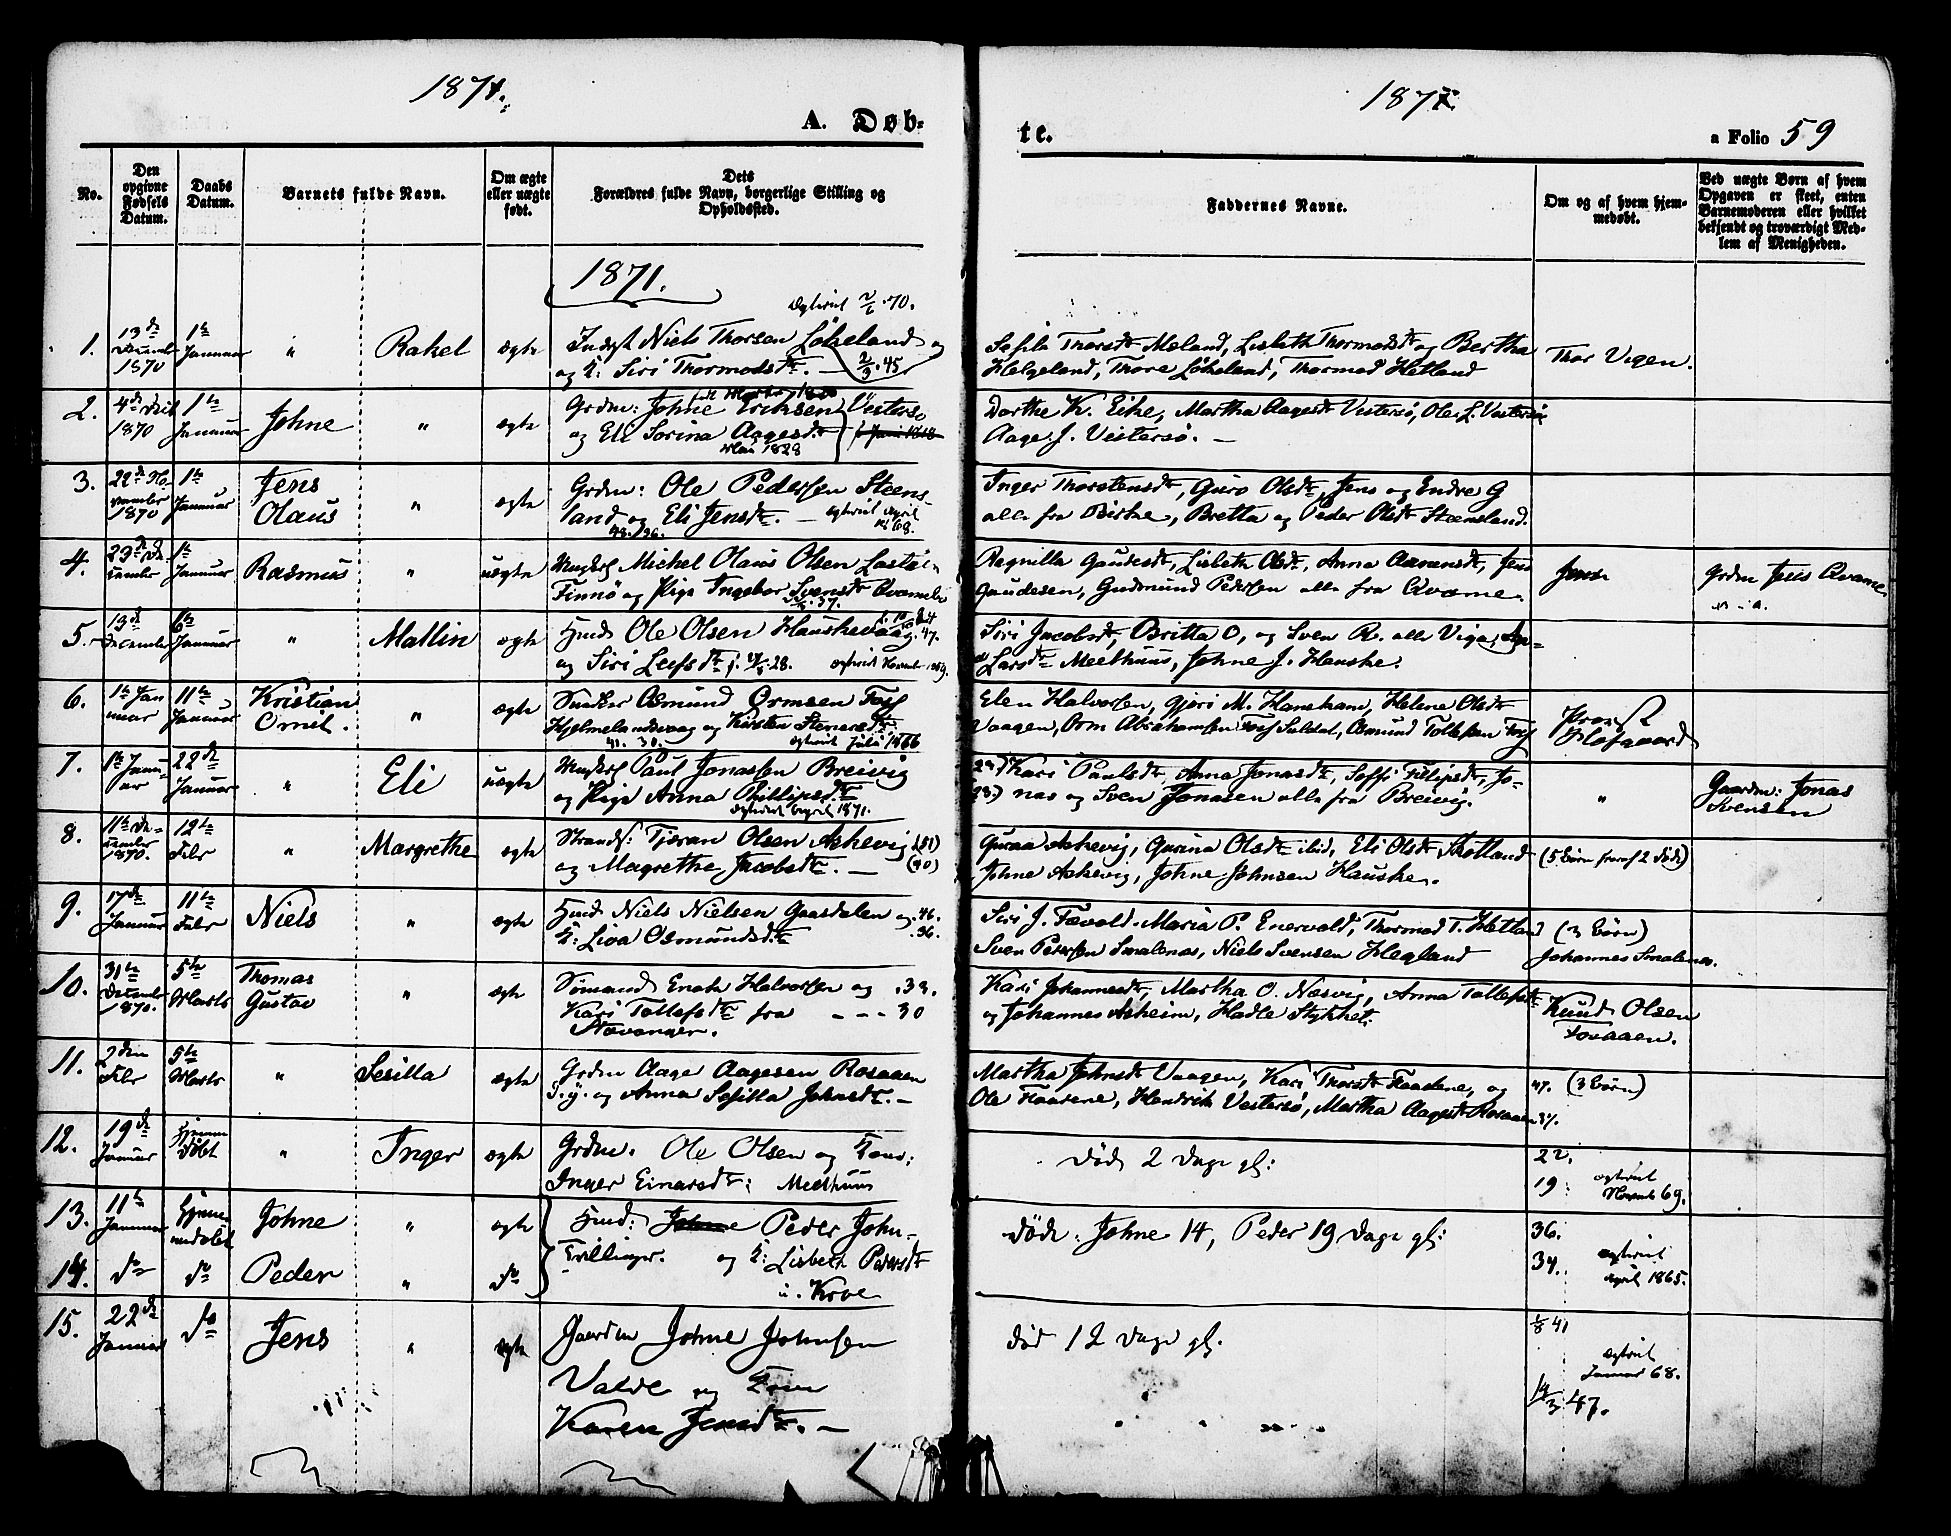 1871.
1871.
A. Døb-
te.
a Folio 59
No.
Den opgivne Fødsels Datum.
Daabs Datum.
Barnets fulde Navn.
Om ægte eller uægte født.
Dets Forældres fulde Navn, borgerlige Stilling og Opholdssted.
Faddernes Navne.
Om og af hvem hjemmedøbt.
Ved uægte Børn af hvem Opgaven er skeet, enten Barnemoderen eller hvilket bekjendt og troværdigt Medlem af Menigheden.
1871.
1. 13de December 1870 1te Januar " Rakel ægte
Indst Niels Thorsen Løkeland og
og K: Siri Thormodsdtr. —
Sesila Thorsdtr Meland, Lisbeth Thormodsdtr og Bertha
Helgeland, Thore Løkeland, Thormod Hetland
Thor Vigen.
2. 4de Decb 1870 1te Januar Johne " ægte
Grdm: Johne Erichsen Vestersø
og Eli Sorina Aagesdtr
Dorthe K. Eike, Martha Aagesdtr Vestersø, Ole L. Vestersø
Aage J. Vestersø. —
3. 22de November 1870 1te Januar Jens Olaus " ægte
Grdm: Ole Pedersen Steens-
land og Eli Jensdtr. —
Inger Thorstensdtr, Guro Olsdtr, Jens og Endre G
alle fra Birke, Bretta og Peder Olsdtr Steensland.
4. 23de December 1te Januar Rasmus " uægte
Ungkrl Michel Olaus Olsen
Finnø og Pige Ingebor Svensdtr Qvame
Ragnilla Gaudesdtr, Lisbeth Olsdtr, Anna Aavensdtr, Jens
Gaudesen, Gudmund Pedersen alle fra Qvame.
Grdm Jens Qvame
5. 13de December 6te Januar " Mallin ægte
Hmd Ole Olsen Hauskevaag 47.
og Siri Leifsdtr f. 28.
Siri Jacobsdtr, Britta O, og Sven R. alle Viga,
Larsdtr Meelhuus, Johne J. Hauske.
6. 1te Januar 11te Januar Kristian Ornel. " ægte
Osmund Ormsen Foss
Hjelmelandsvaag og Kirsten
Elen Halvorsen, Gjøri M. Hanekam, Helene Olsdtr
Vaagen, Orm Abrahamsen Foss Suldal, Osmund Tollefsen Foss
Provst
7. 1te Januar 22de Januar " Eli uægte
Ungkrl Paul Jonassen Breivig
og Pige Anna Philipsdtr
Kari Paulsdtr, Anna Jonasdtr, Soffi Fillipsdtr, Jo-
nas og Sven Jonasen alle fra Breivig.
"
Gaardm: Jonas Svensen
8. 11te December 1870. 12te Febr " Margrethe ægte
Strands: Tjeran Olsen Askevig (31)
og Magrethe Jacobsdtr. — (40)
Guraa Askevig, Gurina Olsdtr ibid, Eli Olsdtr Skotland
Johne Askevig, Johne Johnsen Hauske.
(5 Børn hvoraf 2 døde)
9. 17de Januar 11te Febr Niels " ægte
Hmd Niels Nielsen Gaasdalen og 46.
K: Liva Osmundsdtr 36.
Siri J. Fævold. Maria P. Enervold, Thormod T. Hetland
Sven Pedersen Smalenas, Niels Svensen Hegland
(3 Børn)
Johannes Smalenas.
10. 31te December 1870. 5te Marts Thomas Gustav " ægte
Sømand Enok Halvorsen og .32.
Kari Tollefsdtr fra - - - 30
Stavanger.
Kari Johannesdtr, Martha O. Næsvig, Anna Tollefsdtr
og Johannes Askeim, Hadle Stykket.
Knud Olsen
11. 2den Febr 5te Marts " Sesilla ægte
Grdm Aage Aagesen Rosaaen
S. y. og Anna Sesilla Johnsdtr. —
Martha Johnsdtr Vaagen, Kari Thorsdtr Haarene, og
Ole Haarene, Hendrik Vestersø, Martha Aagesdtr Rosaaen
47. (3 Børn)
37.
12. 19de Januar Hjemmedøbt " Inger ægte
Grdm. Ole Olsen og Kone:
Inger Einarsdtr: Meelhuus
Død 2 Dage gl:
22.
19 ægteviet Novemb 69.
13. 11te Januar Hjemmedøbt Johne " ægte
14. do do Peder " do
Hmd: Johne Peder John-
Trillinger. og K: Lisbeth Pedersdtr
i. Kroe
døde: Johne 14, Peder 19 Dage gl:
36.
34. ægteviet April 1865.
15. 22de Januar do Jens " ægte
Gaardm Johne Johnsen
Valde og Kone
Karen Jensdtr. —
død 12 Dage gl.
41
ægteviet Januar 68.
47.